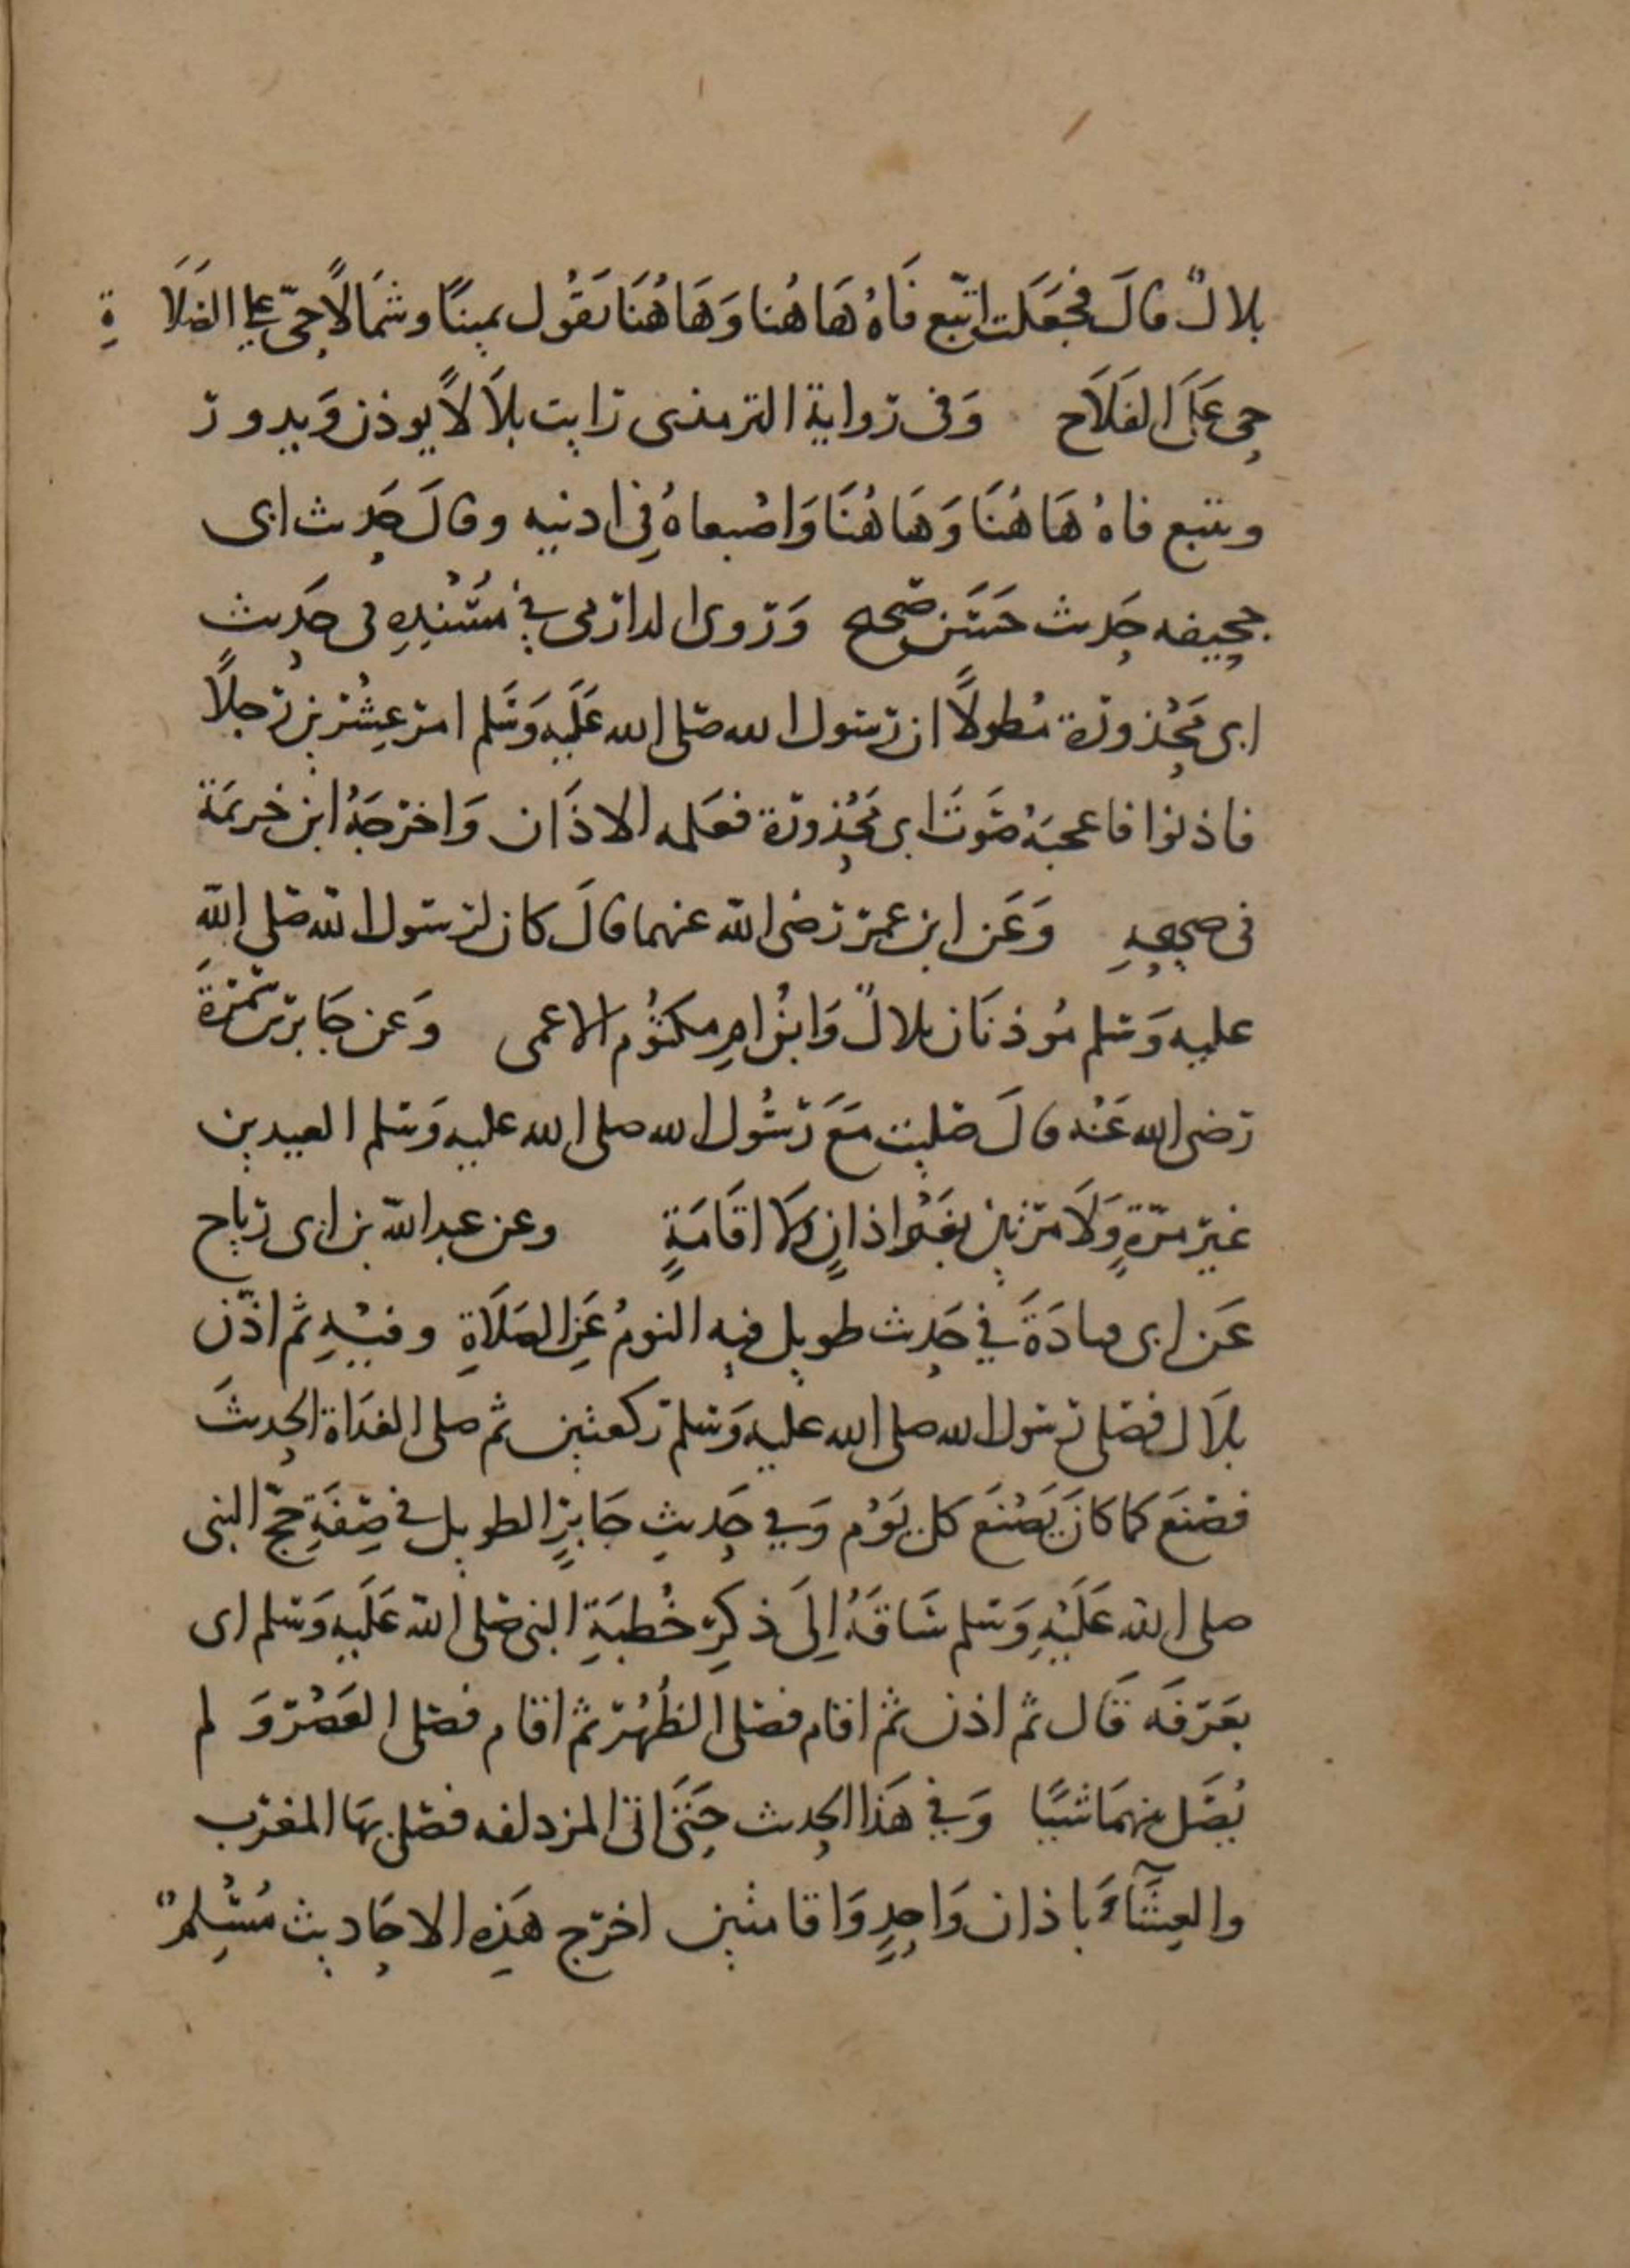 بلالٌ قالَ فجَعَلت اتتبّع فَاهُ هَاهُنا وَهَاهُنَا يَقُول يمينًا وشمَالًا حيّ على الصَلَاةِ
حي عَلَى الفَلَاح وَفى رواية الترمذى رايت بلَالًا يوذن وَيدور
ويتبع فاهُ هَاهُنَا وَهَاهُنَا وَاصْبعاهُ فِى اذنيه وقالَ حَديث ابى
جحيفه حَديث حَسَن صَحيح وَروى الدارمى فى مسْنُدِهِ فى حَديث
ابى مَحْذورة مُطولًا ان رسول الله صَلى الله عَلَيه وَسَلم امر عِشْرين رجلًا
فاذنوا فاعجبَهُ صَوتَ ابى مَحْذورَة فعَلمه الاذَان وَاخرجَهُ ابن خزيمَة
فى صحيحهِ وَعَن ابن عمر رضى الله عنهما قالَ كان لرسول الله صَلى اللهِ
عليه وَسلم مُوذنَان بلالٌ وَابنُ امِ مكتوُم الاعمى وَعَن جَابر بن سَمُرَةَ
رضى الله عَنْه قالَ صَليت مَعَ رَسُول الله صلى الله عليه وَسَلم العيدين
غير مرّةٍ وَلَا مرتين بغَيْر اذانٍ وَلا اقَامَةٍ وعن عبد الله بن ابى رباح
عَن ابى قتادَةَ فى حَديث طويل فيه النومُ عَنِ الصَلَاةِ وفيْهِ ثم اذّن
بلَال فصَلى رسول الله صلى الله عليه وَسَلم ركعتين ثم صلى الغدَاة الحديثَ
فصَنعَ كما كانَ يَصْنَع كل يَوْم وَفي حَديثِ جَابرٍ الطويل فى صِفَةِ حَجّ النبى
صلى الله عَلَيْهِ وَسَلم سَاقَهُ اِلَى ذكِر خُطبَةِ النبى صَلى الله عَلَيهِ وَسَلم اى
بعَرَفَه قَال ثم اذن ثم اقام فصَلى الظُهْرَ ثم اقام فصَلى العَصْرَ وَ لم
يُصَل بينهمَا شيًا وَفي هَذا الحديث حَتَى اتى المزدلفه فصَلى بهَا المغرب
والعِشَآءَ باذان وَاحدٍ وَاقامتين اخرج هَذِهِ الاحَاديث مُسْلِمٌ